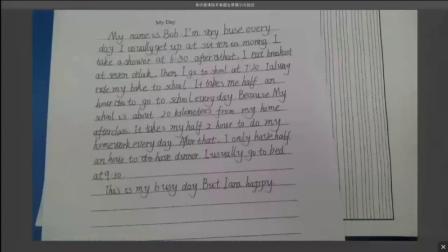 My Day
My name is Bob. I'm very buse every
day. I usually get up at six ten in morning. I
take a shower at 6:30 after that. I eat breakfast
at seven oclock. Then I go to school at 7:20. I alway
ride my bike to school. It takes me half an
hour to go to school every day. Because My
school is about 20 kilometers from my home
afterclass. It takes my half 2 hour to do my
homework every day. After that, I only have half
an hour to have dinner. I usually go to bed
at 9:30.
This is my busy day But I am happy.